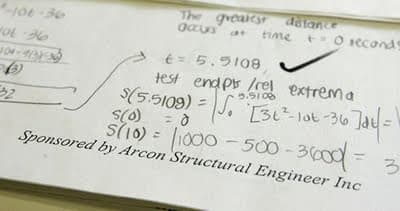 -10t -36
10t -36
32
The greatest distance
occurs at time t = 0 seconds
t = 5.5109
test endpts/rel extrema
S(5.5109) = |∫₀^5.5109 [3t²-10t-36]dt| =
S(0) = 0
S(10) = |1000 - 500 - 3600| = 3
Sponsored by Arcon Structural Engineer Inc